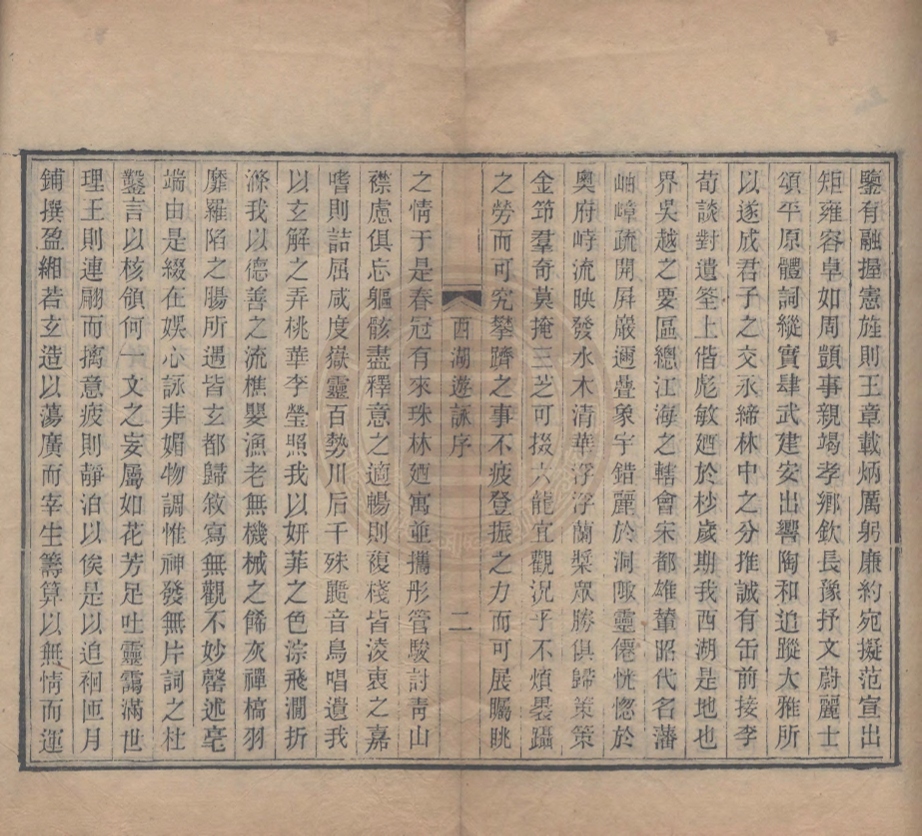 鑒有融握憲旌則王章載炳厲躬廉約宛擬范宣出
矩雍容卓如周顗事親竭孝鄉欽長豫抒文蔚麗士
頌平原體詞縱實肆武建安出響陶和追蹤大雅所
以遂成君子之交永締林中之分推誠有缶前接李
荀談對遺筌上偕彪敏廼於杪歲期我西湖是地也
界吳越之要區總江海之轄會宋都雄輦昭代名藩
岫嶂疏開屏巖邇疊象宇錯麗於洞陬靈僊恍惚於
奧府峙流映發水木清華浮浮蘭槳眾勝俱歸策策
金笻羣奇莫掩三芝可掇六龍宜觀況乎不煩晷躡
之勞而可究攀躋之事不疲登振之力而可展矚眺
西湖遊詠序 二
之情于是春冠有來珠林廼寓並攜彤管駿討青山
襟慮俱忘軀骸盡釋意之適暢則複棧皆淩衷之嘉
嗜則詰屈咸度嶽靈百勢川后千殊颸音鳥唱遺我
以玄解之弄桃華李瑩照我以妍菲之色淙飛澗折
滌我以德善之流樵嬰漁老無機械之餙灰禪槁羽
靡羅陷之腸所遇皆玄都歸敘寫無觀不妙罄述毫
端由是綴在娛心詠非媚物調惟神發無片詞之杜
鑿言以核領何一文之妄屬如花芳足吐靈靄滿世
理王則連翩而摛意疲則靜泊以俟是以迫裥匝月
鋪撰盈緗若玄造以蕩廣而宰生籌算以無情而運